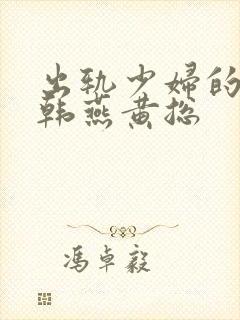 出轨少妇的
韩燕黄总
冯卓毅